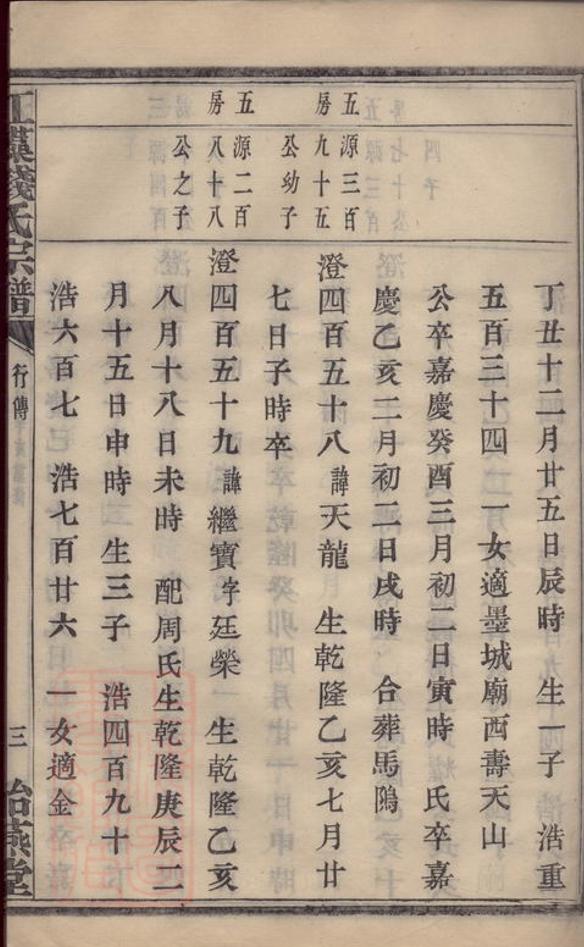 丁丑十二月廿五日辰時 生一子 浩重
五百三十四 一女適墨城廟西壽天山
公卒嘉慶癸酉三月初二日寅時 氏卒嘉
慶乙亥二月初二日戌時 合葬馬隖
五房
源三百九十五公幼子
澄四百五十八 諱天龍 生乾隆乙亥七月廿
七日子時卒
五房
源二百八十八公之子
澄四百五十九 諱繼寶 字廷榮 生乾隆乙亥
八月十八日未時 配周氏生乾隆庚辰二
月十五日申時 生三子 浩四百九十
浩六百七 浩七百廿六 一女適金
錢氏宗譜
行傳
三